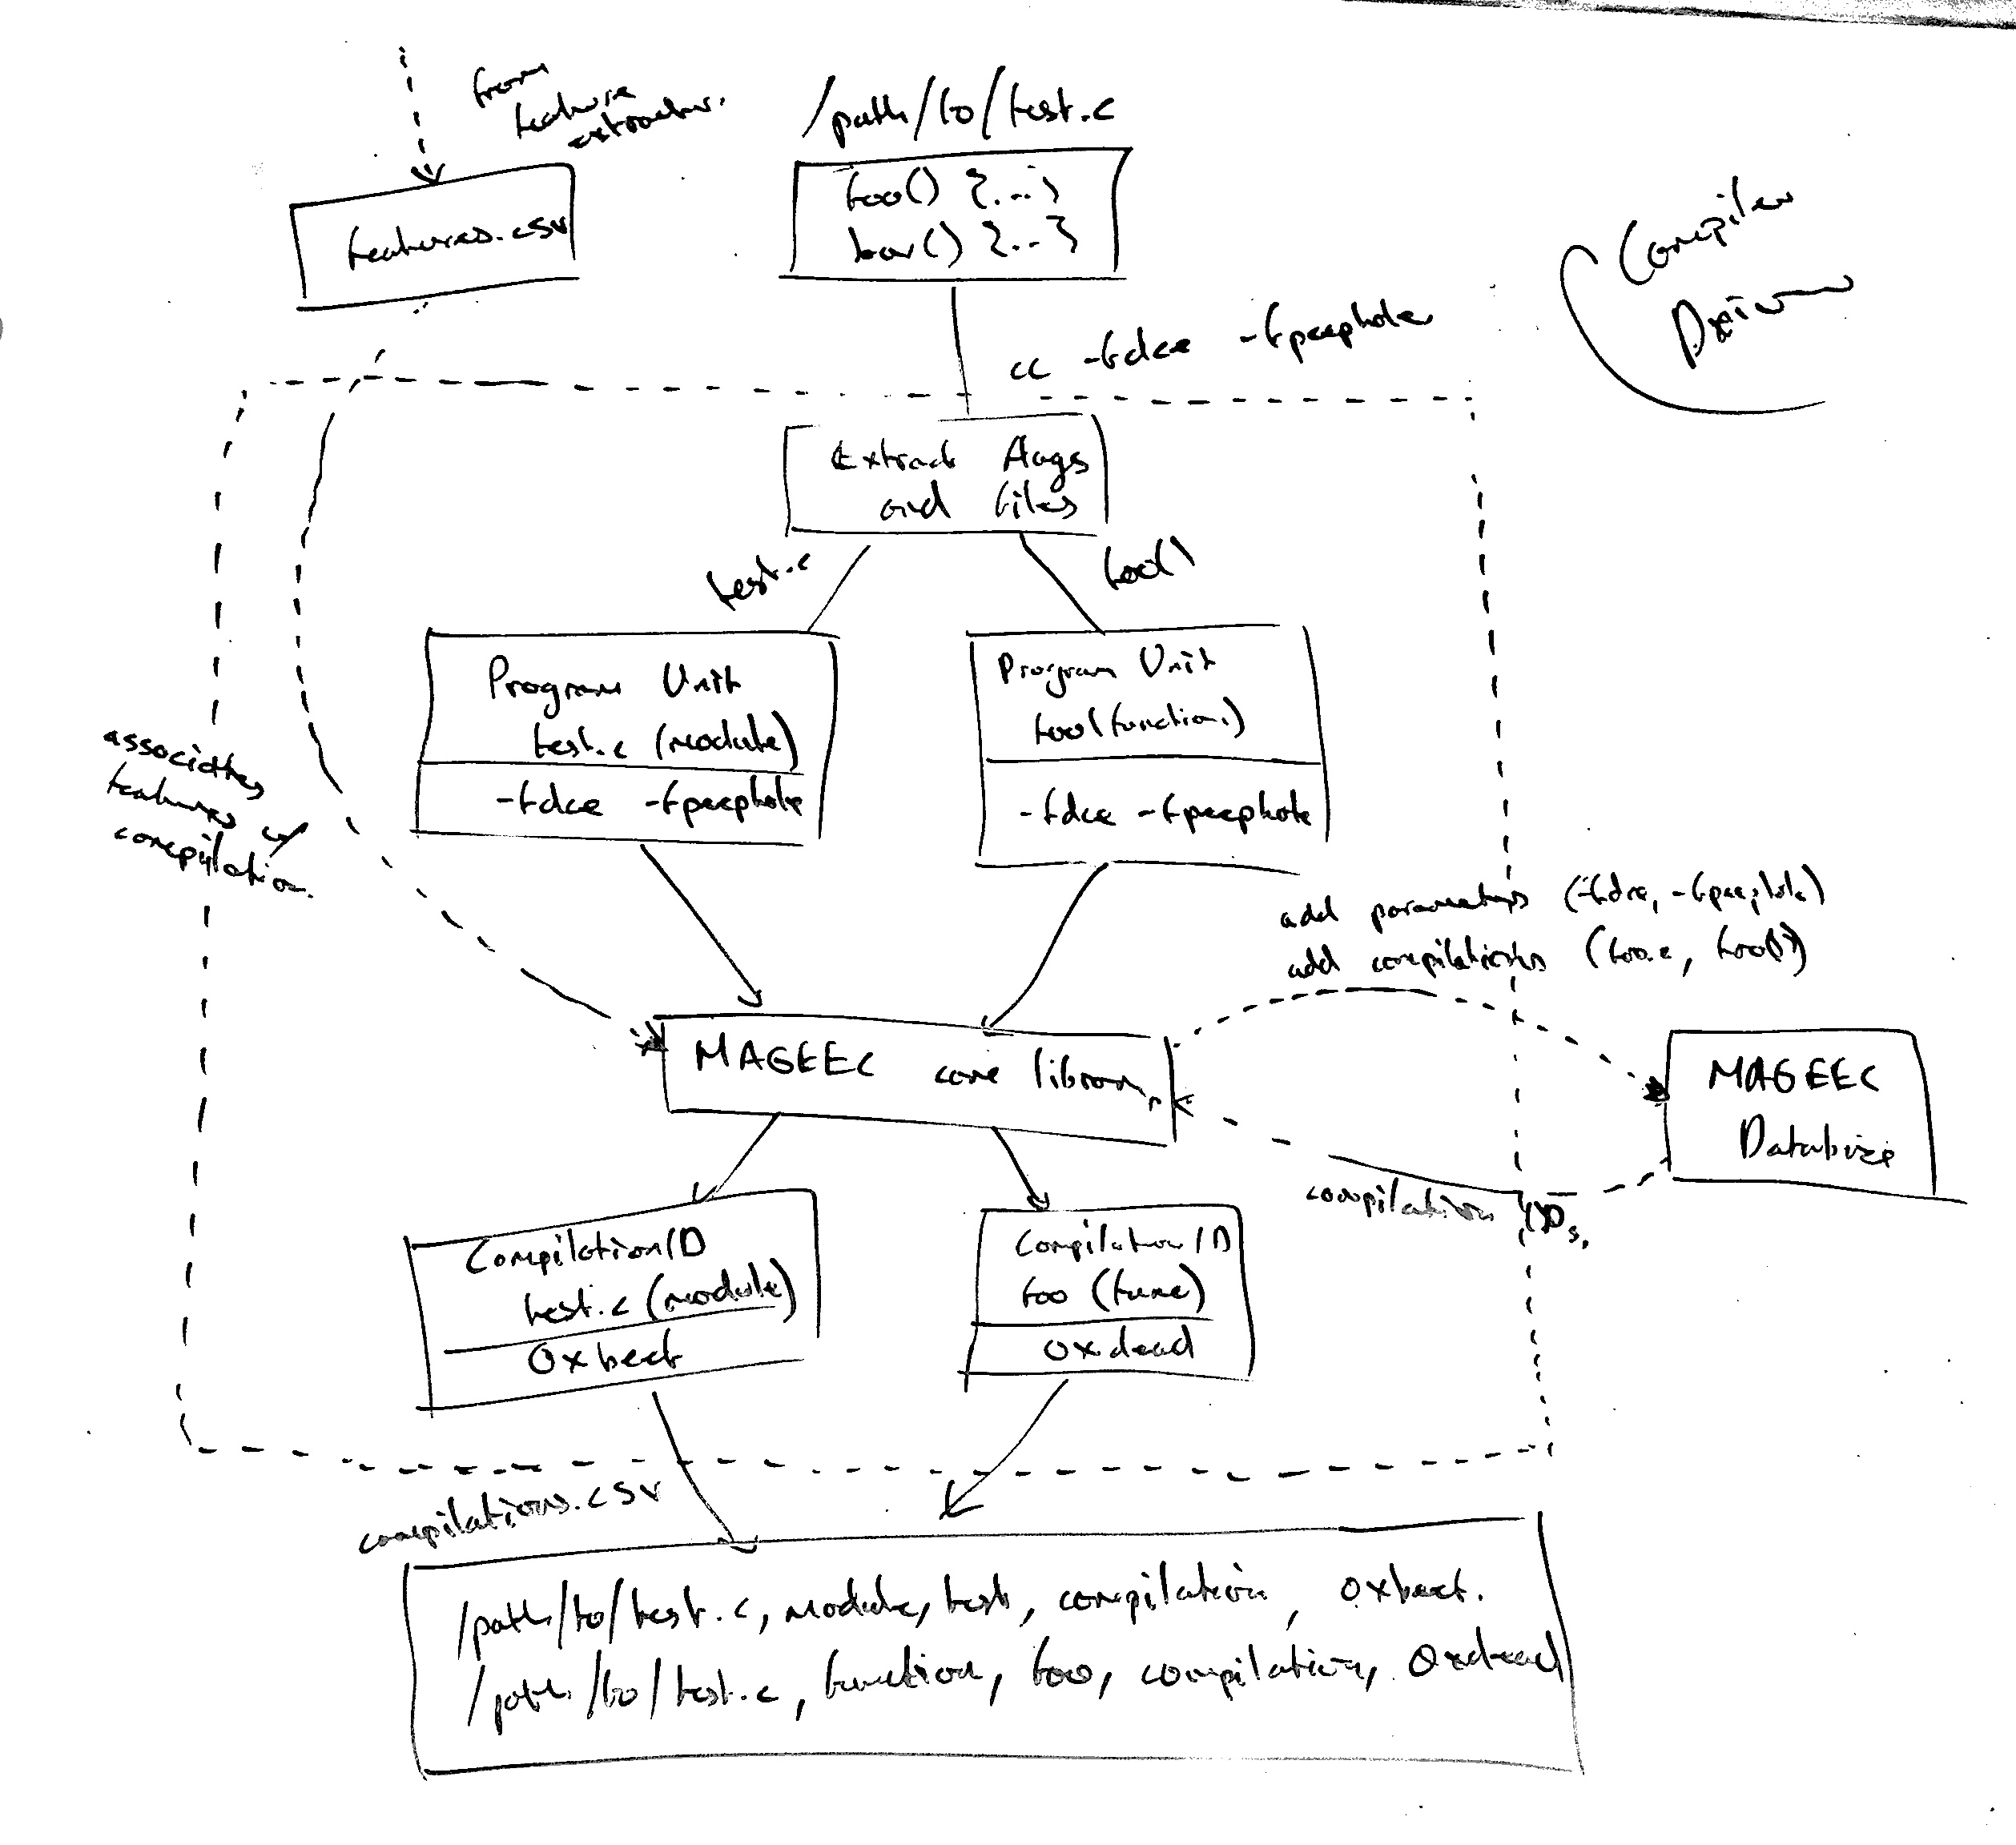 from
feature
extractor.
/path/to/test.c
features.csv
foo() {...}
bar() {...}
Compiler
Driver
cc -fdce -fpeephole
Extract flags
and files
test.c
foo()
Program Unit
test.c (module)
-fdce -fpeephole
Program Unit
foo(function)
-fdce -fpeephole
associates
features w/
compilation.
add parameters (-fdce, -fpeephole)
add compilations (foo.c, foo())
MAGEEC core library
MAGEEC
Database
compilation IDs.
CompilationID
test.c (module)
0xbeef
CompilationID
foo (func)
0xdead
compilations.csv
/path/to/test.c, module, test, compilation, 0xbeef.
/path/to/test.c, function, foo, compilation, 0xdead